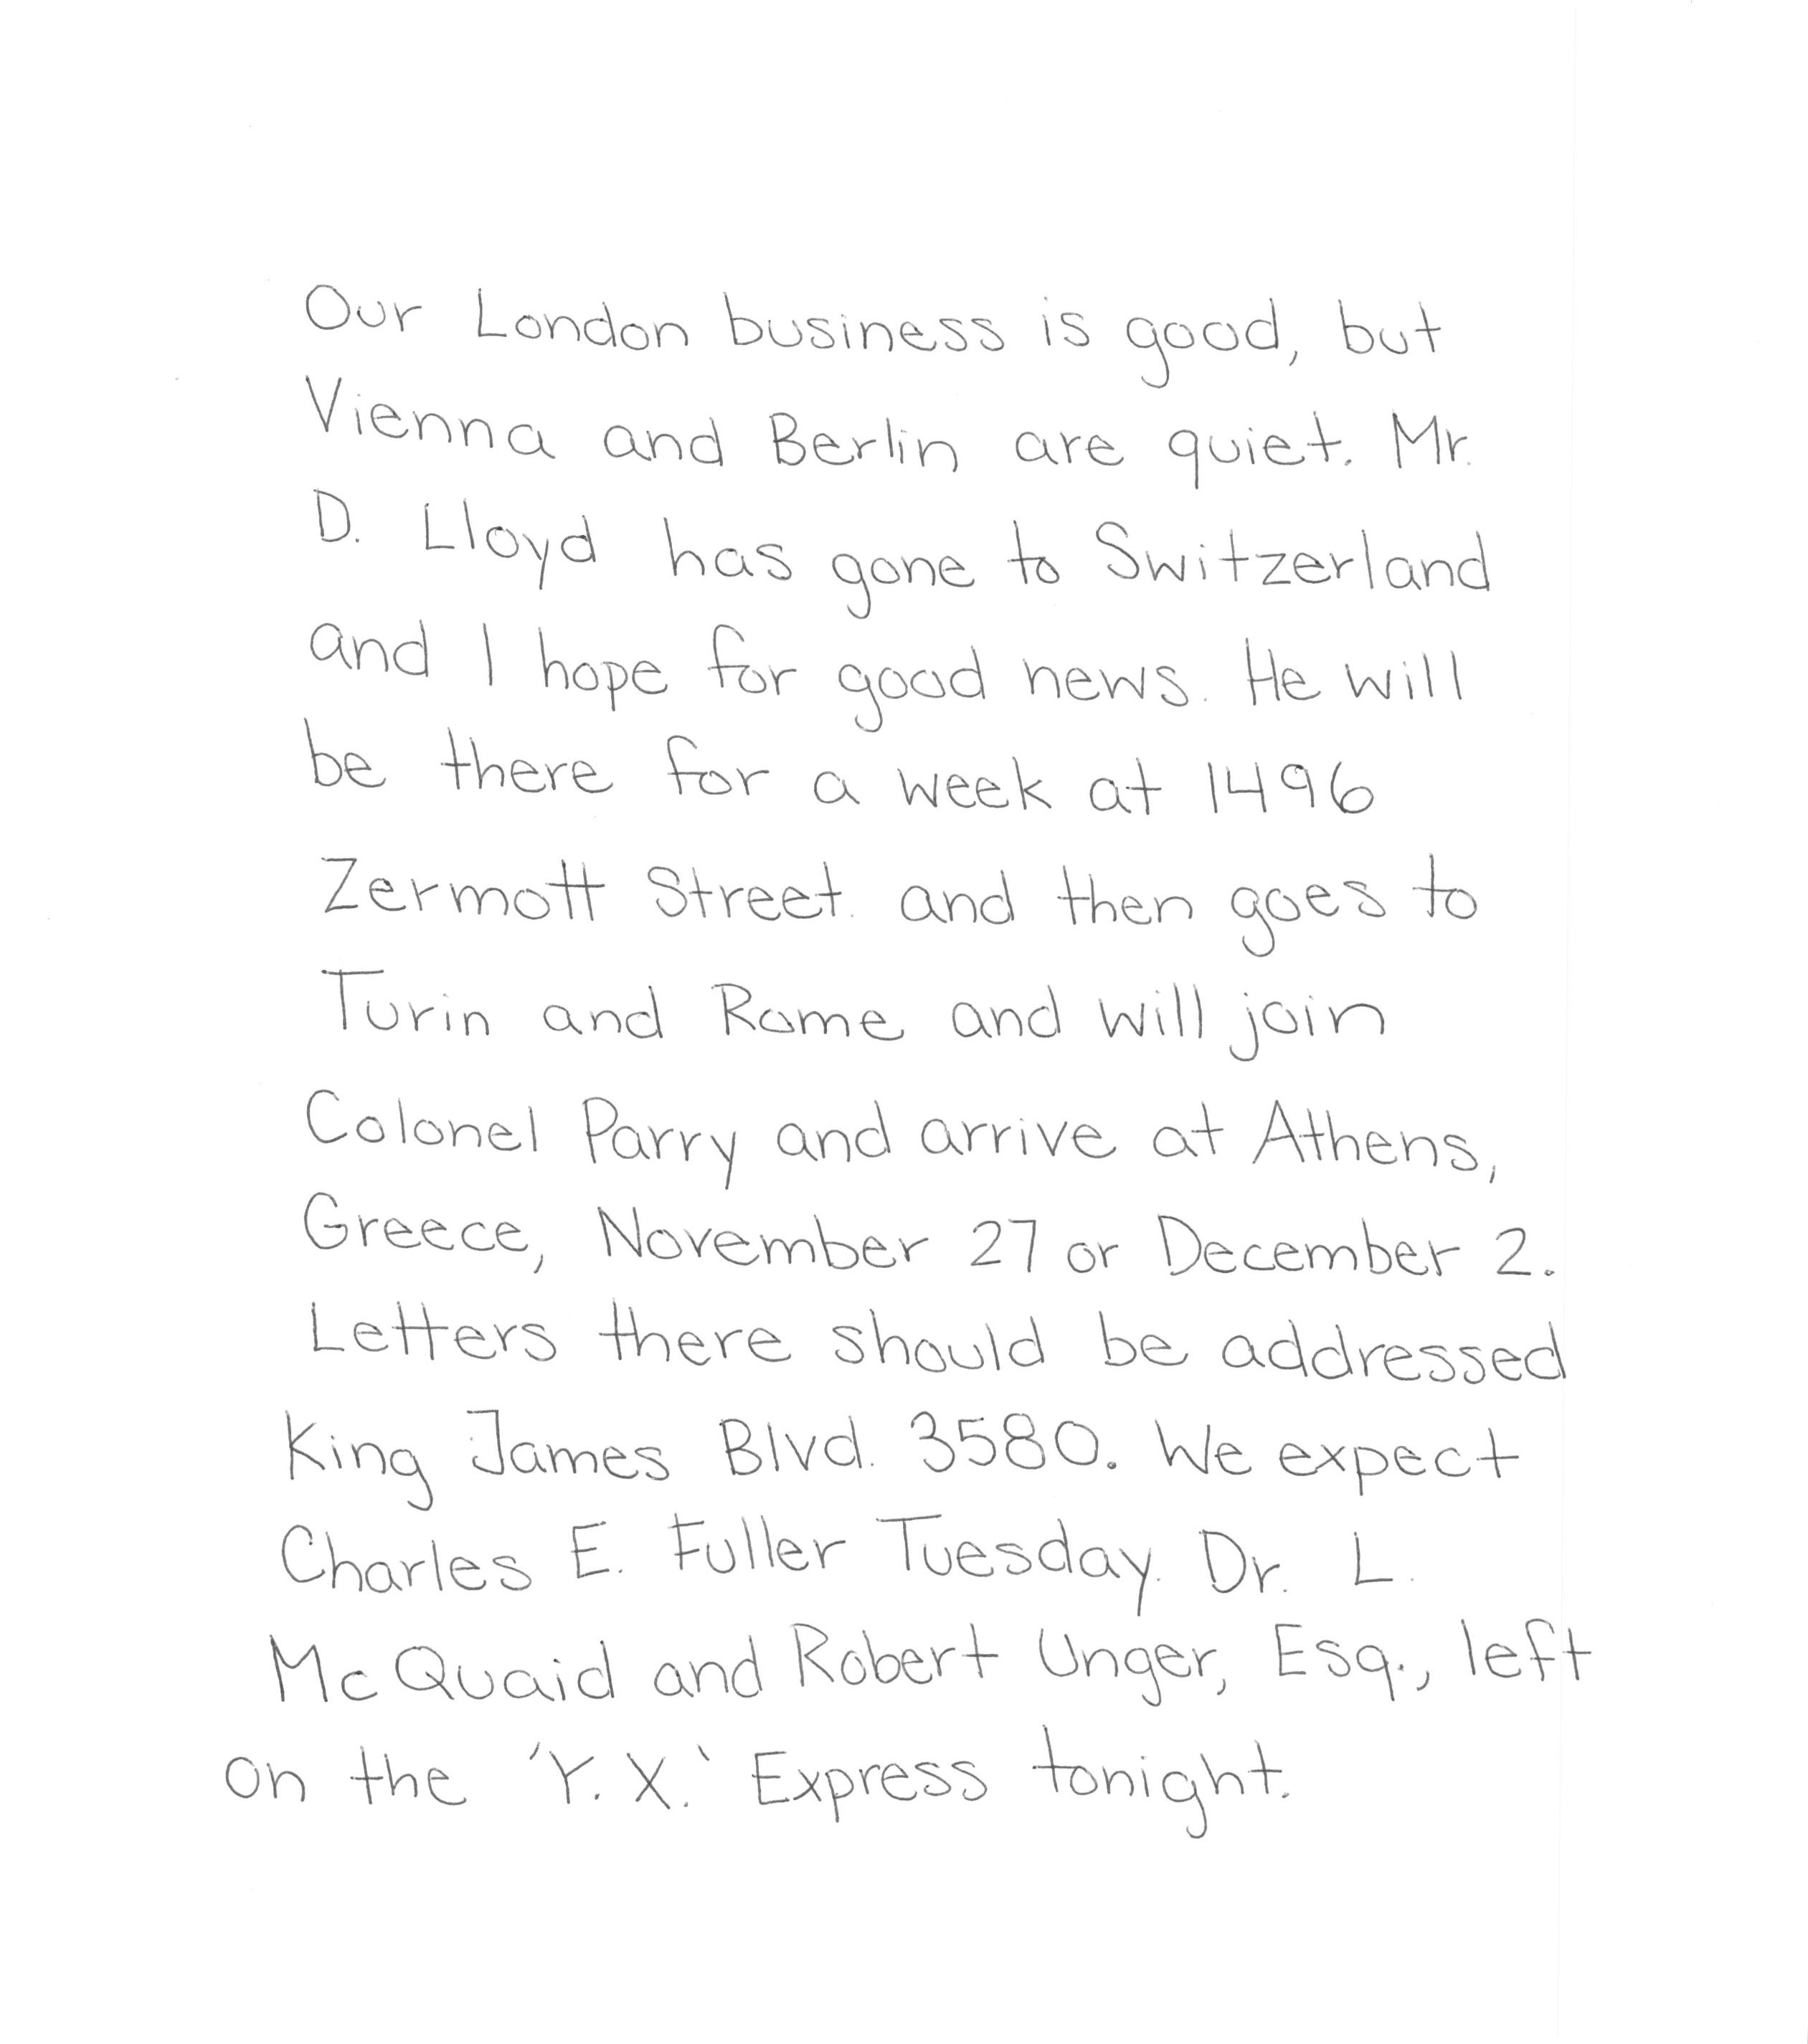 Our London business is good, but
Vienna and Berlin are quiet. Mr.
D. Lloyd has gone to Switzerland
and I hope for good news. He will
be there for a week at 1496
Zermott Street. and then goes to
Turin and Rome and will join
Colonel Parry and arrive at Athens,
Greece, November 27 or December 2.
Letters there should be addressed
King James Blvd. 3580. We expect
Charles E. Fuller Tuesday. Dr. L.
McQuaid and Robert Unger, Esq., left
on the 'Y. X.' Express tonight.